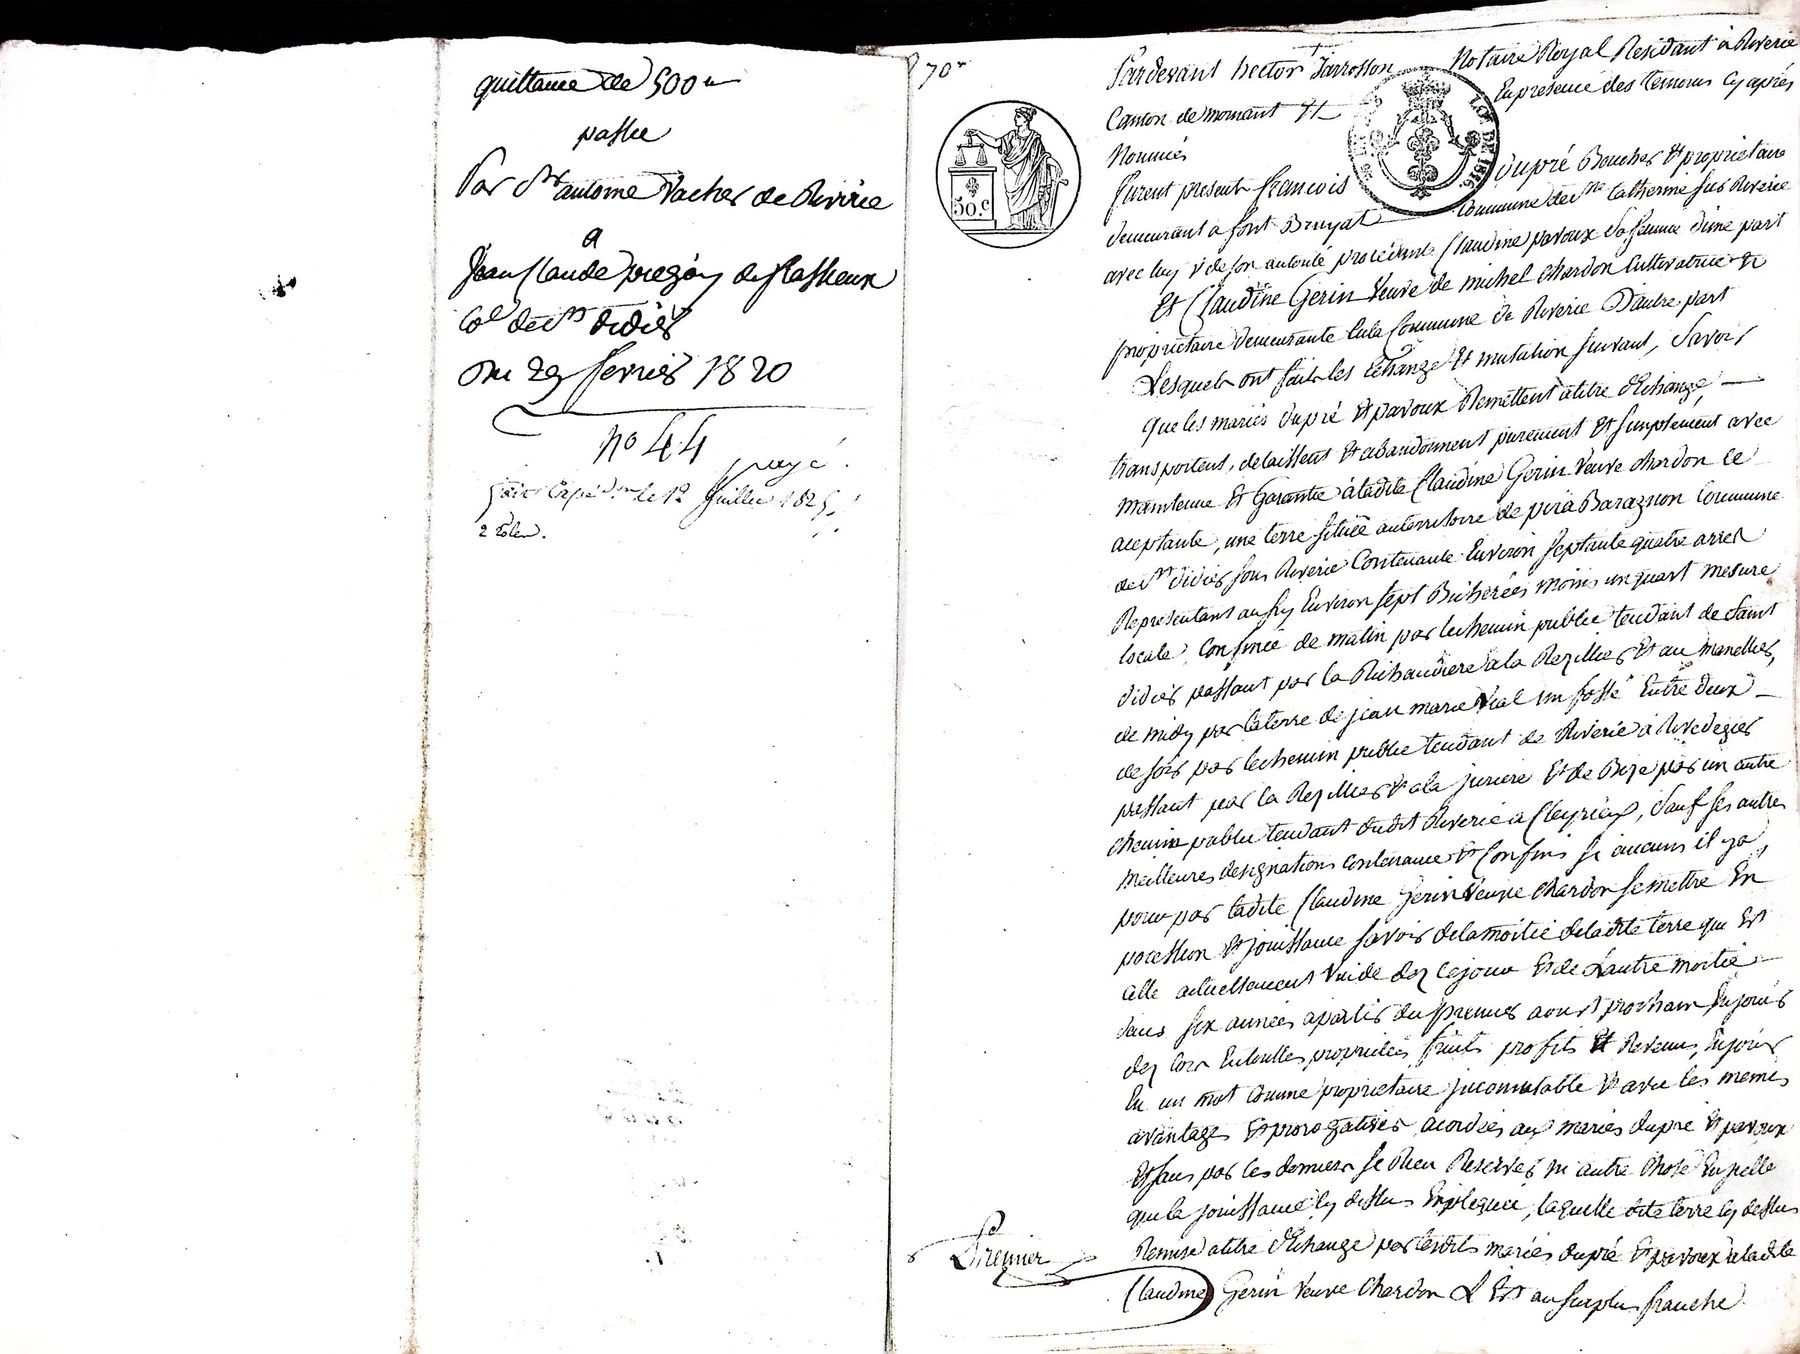 quittance de 500 "
passée
Par Sr antoine Vacher de Riverie
a
Jean Claude de flassieux
Col de St didier
Du 29 fevrier 1820
no 44
payé
fait Expedon le 12 Juillet 182
2 Rolles.
70
50.c
LOI DE 1816
Pardevant hector Jarrosson Notaire Royal Residant à Riverie
Canton de mornant &
En présence des temoins Cy après
Nommés
furent présents francois dupré Boucher et proprietaire
demeurant a font Bruyat Commune de Ste Catherine sur Riverie
avec luy & de son autorité procédante Claudine pavoux Sa femme d'une part
Et Claudine Gerin Veuve de michel Chardon Cultivatrice et
proprietaire demeurante En la Commune de Riverie D'autre part
Lesquels ont fait les Echange Et mutation suivant, Savoir
que les mariés dupré et pavoux Remettent a titre d'Echange,
transportent, delaissent et abandonnent purement Et simplement avec
maintenue Et Garantie à ladite Claudine Gerin Veuve Chardon Ce
aceptante, une terre située au territoire de Commune
de St Didier sous Riverie Contenante Environ septante quatre arres
Representant au Environ sept Bicherées moins un quart mesure
locale, Confinée de matin par le chemin public tendant de Saint
didier passant par la Richaudiere a la Rezillier et au
de midy par la terre de jean marie Vial un fossé Entre deux
de soir par le chemin public tendant de Riverie à Rivedegier
passant par la Rezillier & a la Et de Bize par un autre
chemin public tendant dudit Riverie à, Sauf ses autres
meilleures designations contenance et Confins si aucuns il y a,
pour par ladite Claudine Gerin Veuve Chardon se mettre En
possession et jouissance savoir de la moitié de ladite terre qui Est
Celle actuellement Vuide dez Cejour et de L'autre moitié
dans six années a partir du premier aoust prochain En jouir
dez lors En touttes proprietés fruits profits et Revenus, En jouir
En un mot Comme proprietaire jncommutable & avec les memes
avantages et prorogatives acordées aux mariés dupré et pavoux
Et sans par Ces derniers se Rien Reserver ni autre Chose En icelle
que la jouissance Cy dessus Expliquée, laquelle dite terre Cy dessus
Remise a titre d'Echange par lesdits mariés dupré et pavoux a ladite
Claudine Gerin Veuve Chardon L Est au surplus franche
Premier